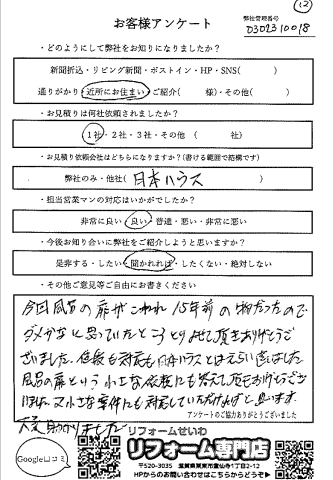 ⑫
お客様アンケート
弊社管理番号
0302310018
・どのようにして弊社をお知りになりましたか？
新聞折込・リビング新聞・ポストイン・HP・SNS(　　　)
通りがかり・近所にお住まい・ご紹介(　　　様)・その他(　　　)
・お見積りは何社依頼されましたか？
1社・2社・3社・その他　(　　　社)
・お見積り依頼会社はどちらになりますか？(書ける範囲で結構です)
弊社のみ・他社( 日本ハウス )
・担当営業マンの対応はいかがでしたか？
非常に良い・良い・普通・悪い・非常に悪い
・今後お知り合いに弊社をご紹介しようと思いますか？
是非する・したい・聞かれれば・したくない・絶対しない
・その他ご意見等ご自由にお書きください
今回風呂の扉がこわれ 15年前の物だったので
ダメかなと思っていたところ とりよせて頂きありがとうご
ざいました。値段も対応も日本ハウスとはえらい違いました
風呂の扉という小さな依頼にも答えて頂きありがとうござ
いました。又小さな案件にも対応していただければと思います。
アンケートのご協力ありがとうございました
大変助かりました
Google口コミ
リフォームせいわ
リフォーム専門店
〒520-3035　滋賀県栗東市霊仙寺1丁目2-12
HPからのお問い合わせはこちらからどうぞ